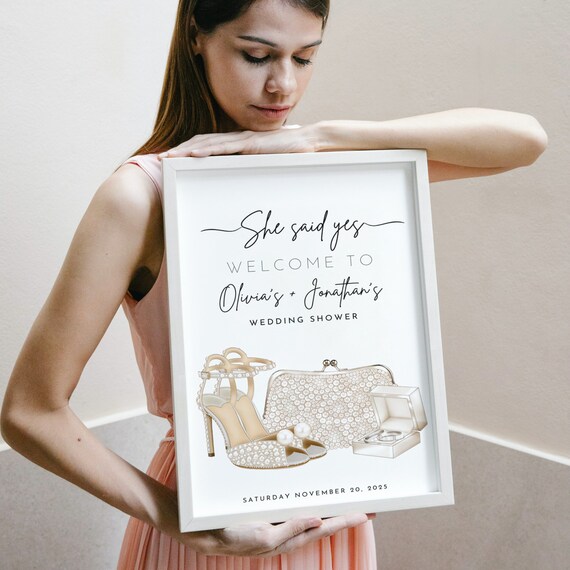 She said yes
WELCOME TO
Olivia's + Jonathan's
WEDDING SHOWER
SATURDAY NOVEMBER 20, 2025